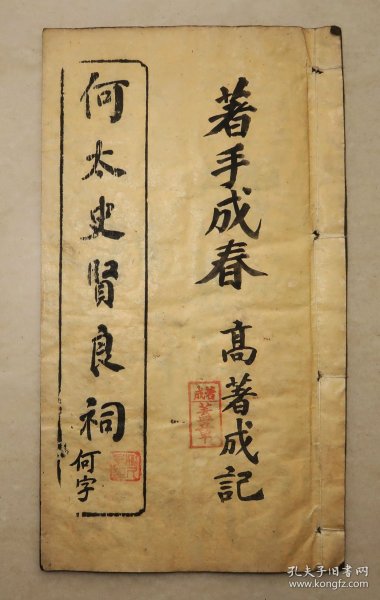 著手成春 高著成記
何太史賢良祠
何字
孔夫子旧书网
www.kongfz.com